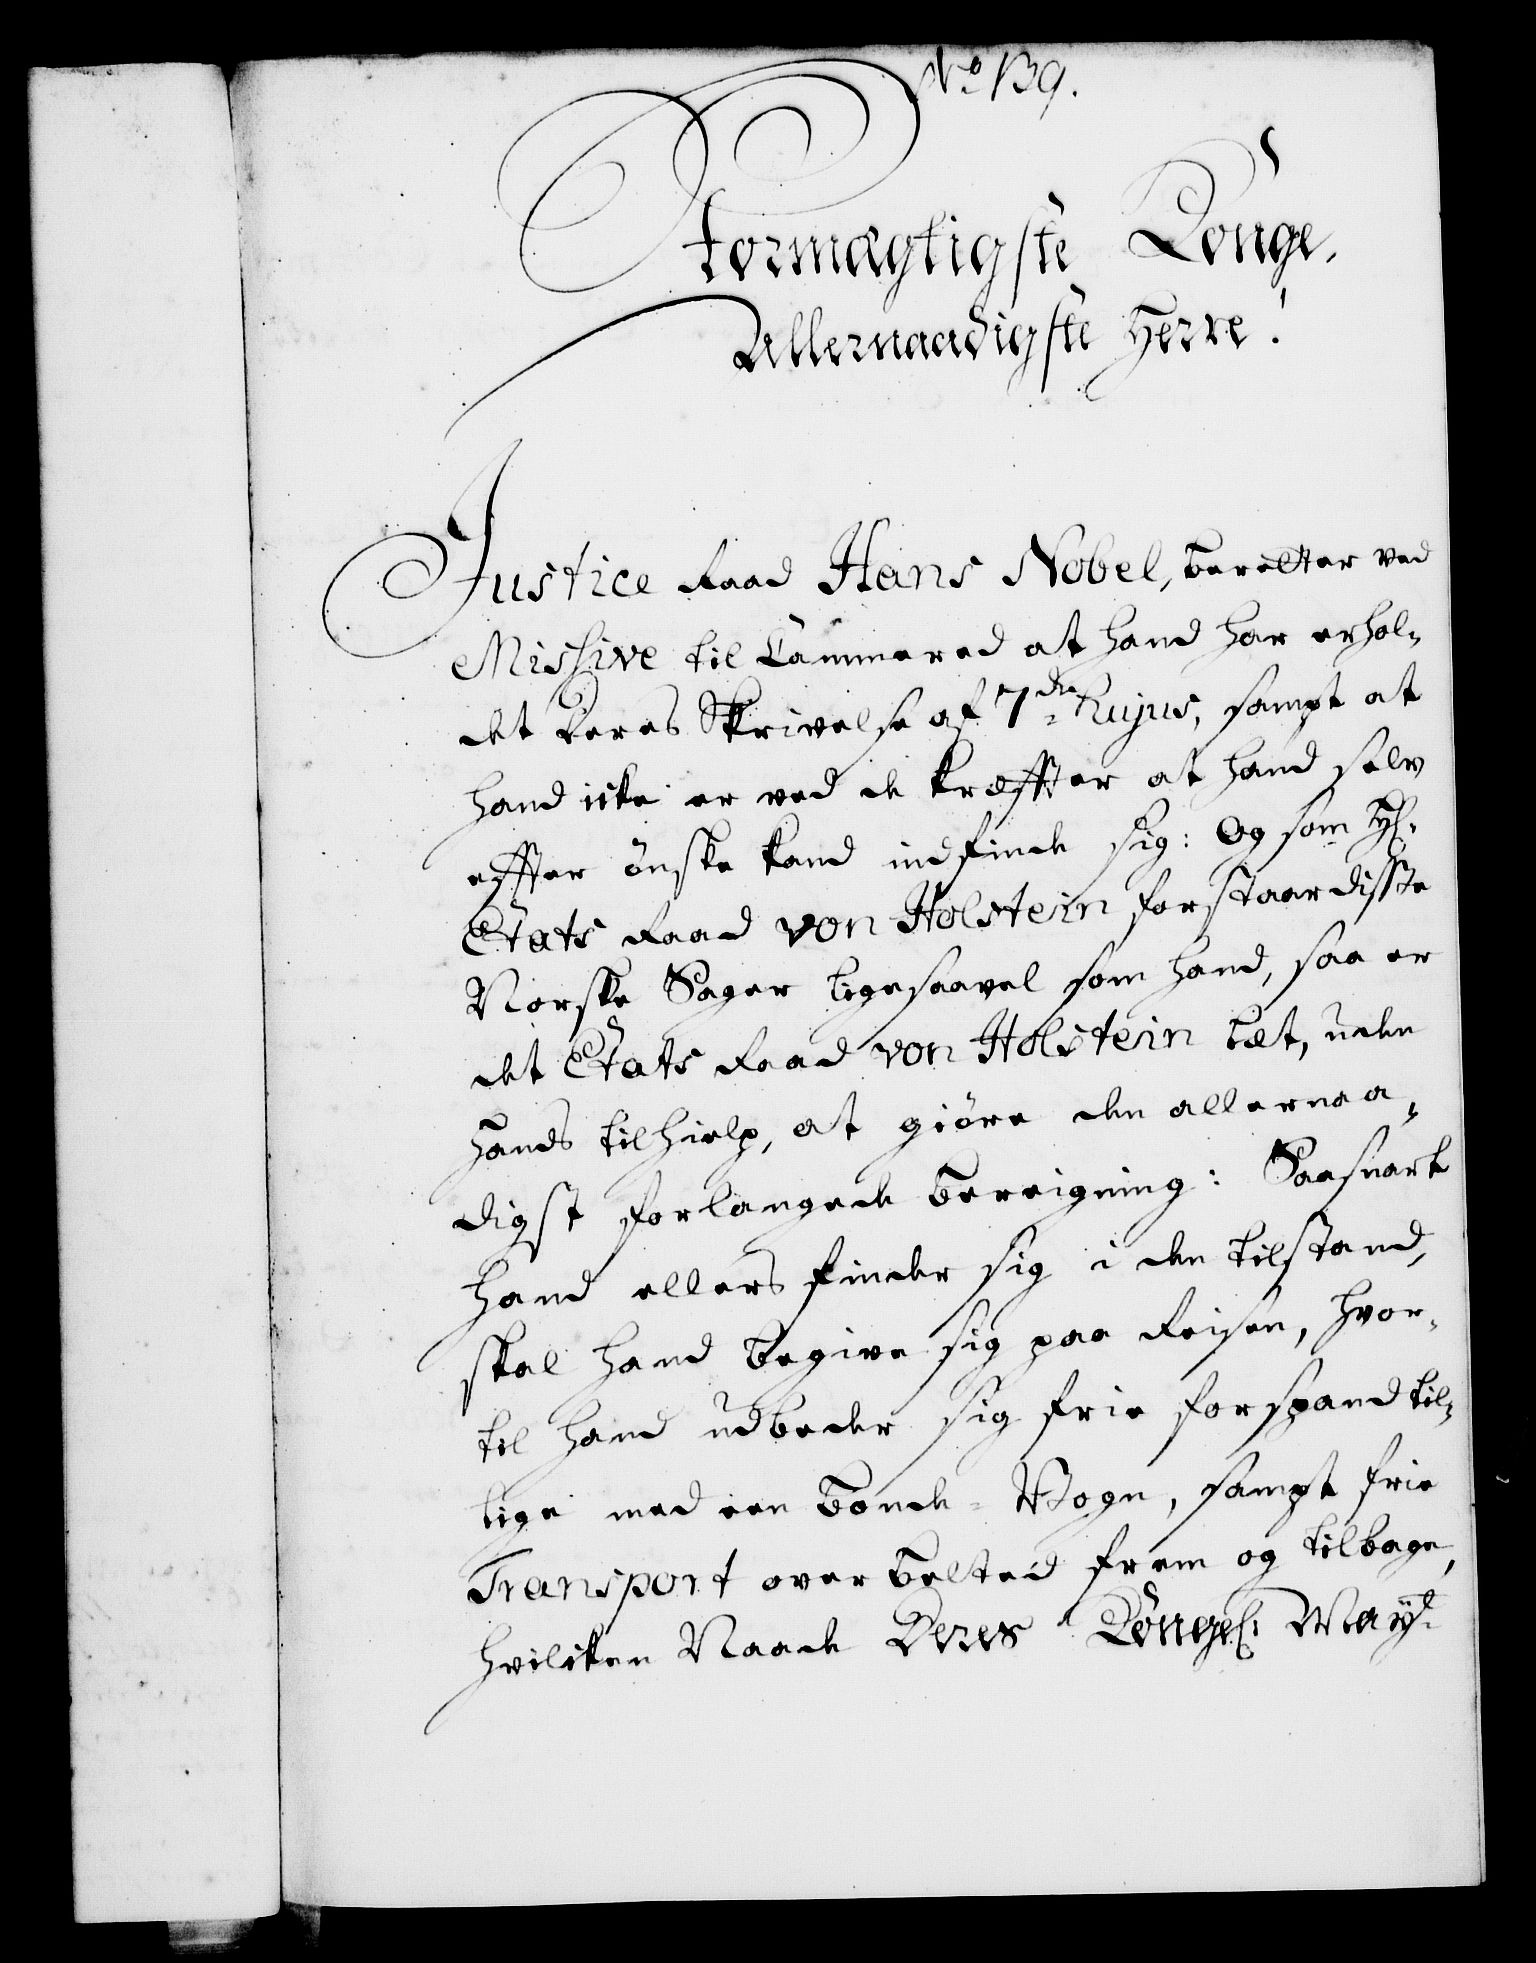 No 139.
Stormægtigste Konge,
Allernaadigste Herre!
Justice Raad Hans Nobel, beretter ved
Missive til Cammered at hand har erhol-
det deres Skrivelse af 7de hujus, sampt at
hand icke er ved de kræffter at hand selv
effter önske kand indfinde sig: Og som H:
Etats Raad von Holstein forstaar disse
Norske Sager ligesaavel som hand, saa er
det Etats Raad von Holstein let, uden
hands tilhielp, at giöre den allernaa-
digst forlangede beregning: Saasnart
hand ellers finder sig i den tilstand,
skal hand begive sig paa Reisen, hvor-
til hand udbeder sig frie forspand til-
lige med een Bonde-Vogn, sampt frie
Transport over Belted frem og tilbage,
hvilcken Naade Deres Kongel: May:t